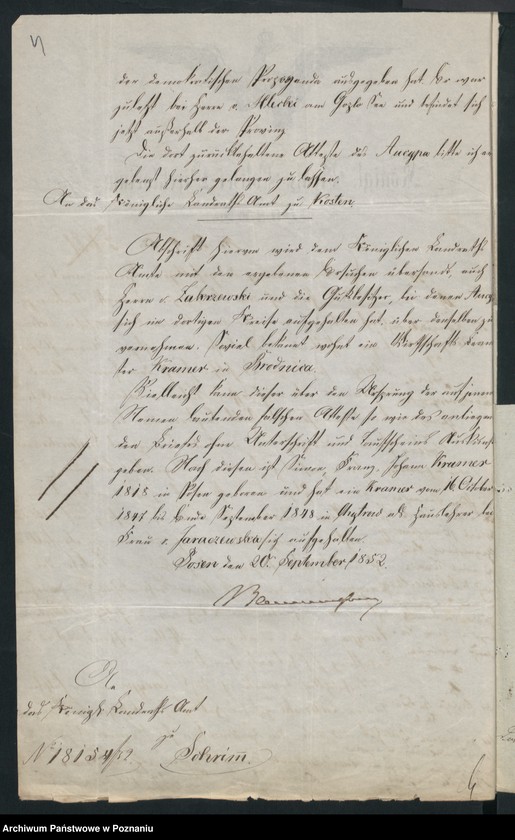 der demokratischen Propaganda ausgegeben hat. Er war
zuletzt bei Herrn v. Ilicki am Goplo See und befindet sich
jetzt außerhalb der Provinz
Die dort zurückbehaltene Atteste des Aucypa bitte ich
gelangt hierher gelangen zu lassen.
An das Königliche Landraths Amt zu Kosten.
Abschrift hiervon wird dem Königlichen Landraths
Amte mit dem ergebenen Ersuchen übersandt, auch
Herrn v. Zakrzewski und die Gutsbesitzer, bei denen
sich im dortigen Kreise aufgehalten hat, über denselben zu
vernehmen. Soviel bekannt wohnt ein Wirthschafts Beam
ter Kramer in Brodnica.
Vielleicht kann dieser über den Ursprung der auf seinen
Namen lautenden falschen Atteste so wie des anliegen
den Briefes ohne Unterschrift und Auskunft
geben. Nach diesen ist Franz Johann Kramer
1818 in Posen geboren und hat ein Kramer vom 16 October
1847 bis Ende September 1848 in als Hauslehrer bei
Frau v. Jaraczewska sich aufgehalten.
Posen den 20. September 1852
An
das Königl. Landraths Amt
zu Schrimm.
No 18184/52
Archiwum Państwowe w Poznaniu